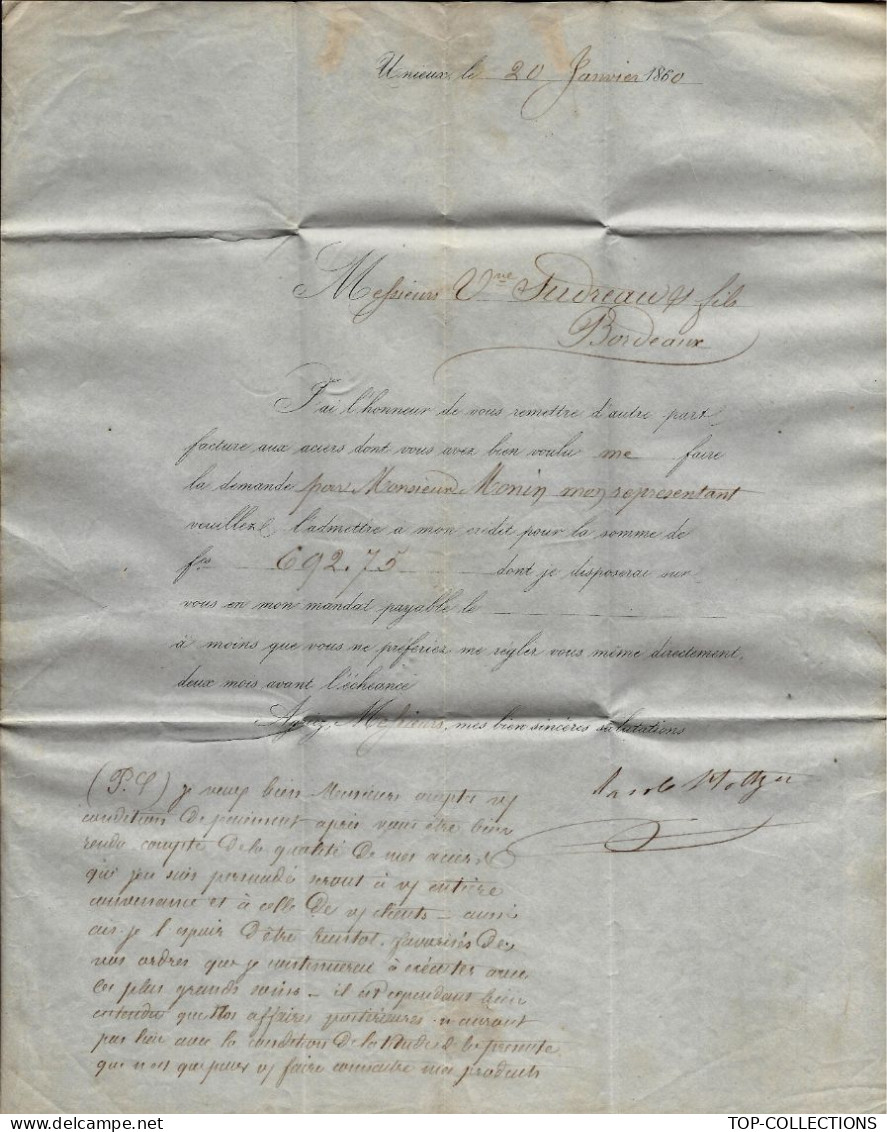 Unieux le 20 Janvier 1860
Messieurs Vve Sudreau & fils
Bordeaux
J'ai l'honneur de vous remettre d'autre part
facture aux aciers dont vous avez bien voulu me faire
la demande par Monsieur Monin mon représentant
veuillez l'admettre à mon crédit pour la somme de
frs 692.75 dont je disposerai sur
vous en mon mandat payable le
à moins que vous ne préfériez me régler vous même directement,
deux mois avant l'échéance
Agréez, Messieurs, mes bien sincères salutations
Jacob Holtzer
(P.S) je veux bien Messieurs accepter vs
condition de paiement après vous être bien
rendu compte de la qualité de mes aciers
que je suis persuadé seront à vs entière
convenance et à celle de vs clients — aussi
ai-je l'espoir d'être bientot favorisés de
vos ordres que je continuerai à exécuter avec
les plus grands soins — il est cependant bien
entendu que Nos affaires postérieures n'auront
pas lieu avec la condition de la
qui n'est que pour vs faire connaitre mes produits
TOP-COLLECTIONS